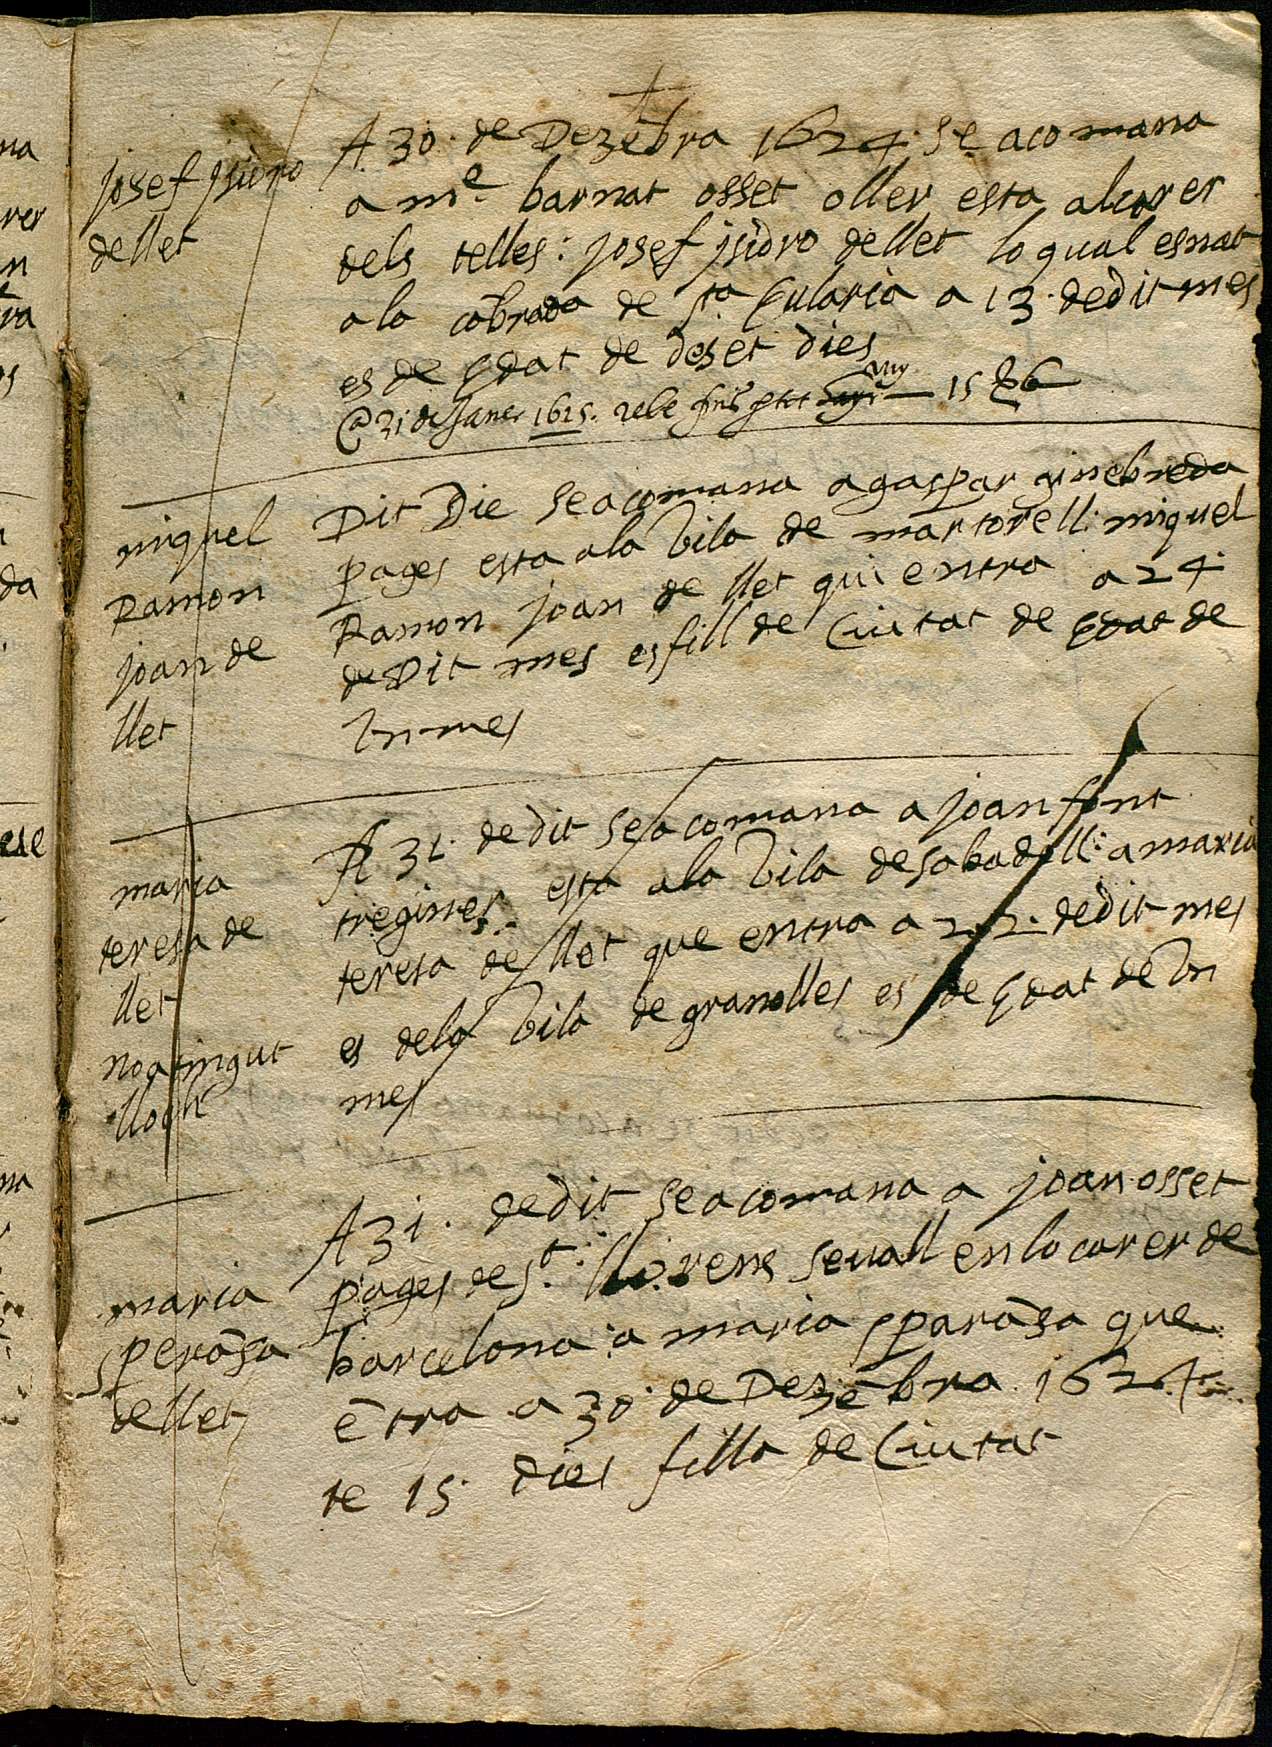 josef jsidro
de llet
A 30 · de Dezēbra 1624 · se acomana
a mᵉ barnat osset oller esta al carer
dels telles : josef jsidro de llet lo qual es nat
a la cobrada de sᵗᵃ Eularia a 13 · de dit mes
es de Edat de deset dies
@ 31 de Janer 1625 · rebe 15 86
miquel
Ramon
joan de
llet
Dit Die se acomana a gaspar ginebreda
pages esta a la vila de martorell : miquel
Ramon joan de llet qui entra a 24
de Dit mes es fill de Ciutat de Edat de
vn mes
maria
teresa de
llet
no a tingut
lloch
A 31 · de dit se acomana a joan font
treginer esta a la vila de sabadell : a maria
teresa de llet que entra a 22 · de dit mes
es dela vila de granolles es de Edat de vn
mes
maria
sperāsa
de llet
A 31 · de dit se acomana a joan osset
pages de sᵗ · llorens se uall en lo carer de
barcelona : a maria sparāsa que
ētra a 30 · de Dezēbra 1624
te 15 · dies filla de Ciutat